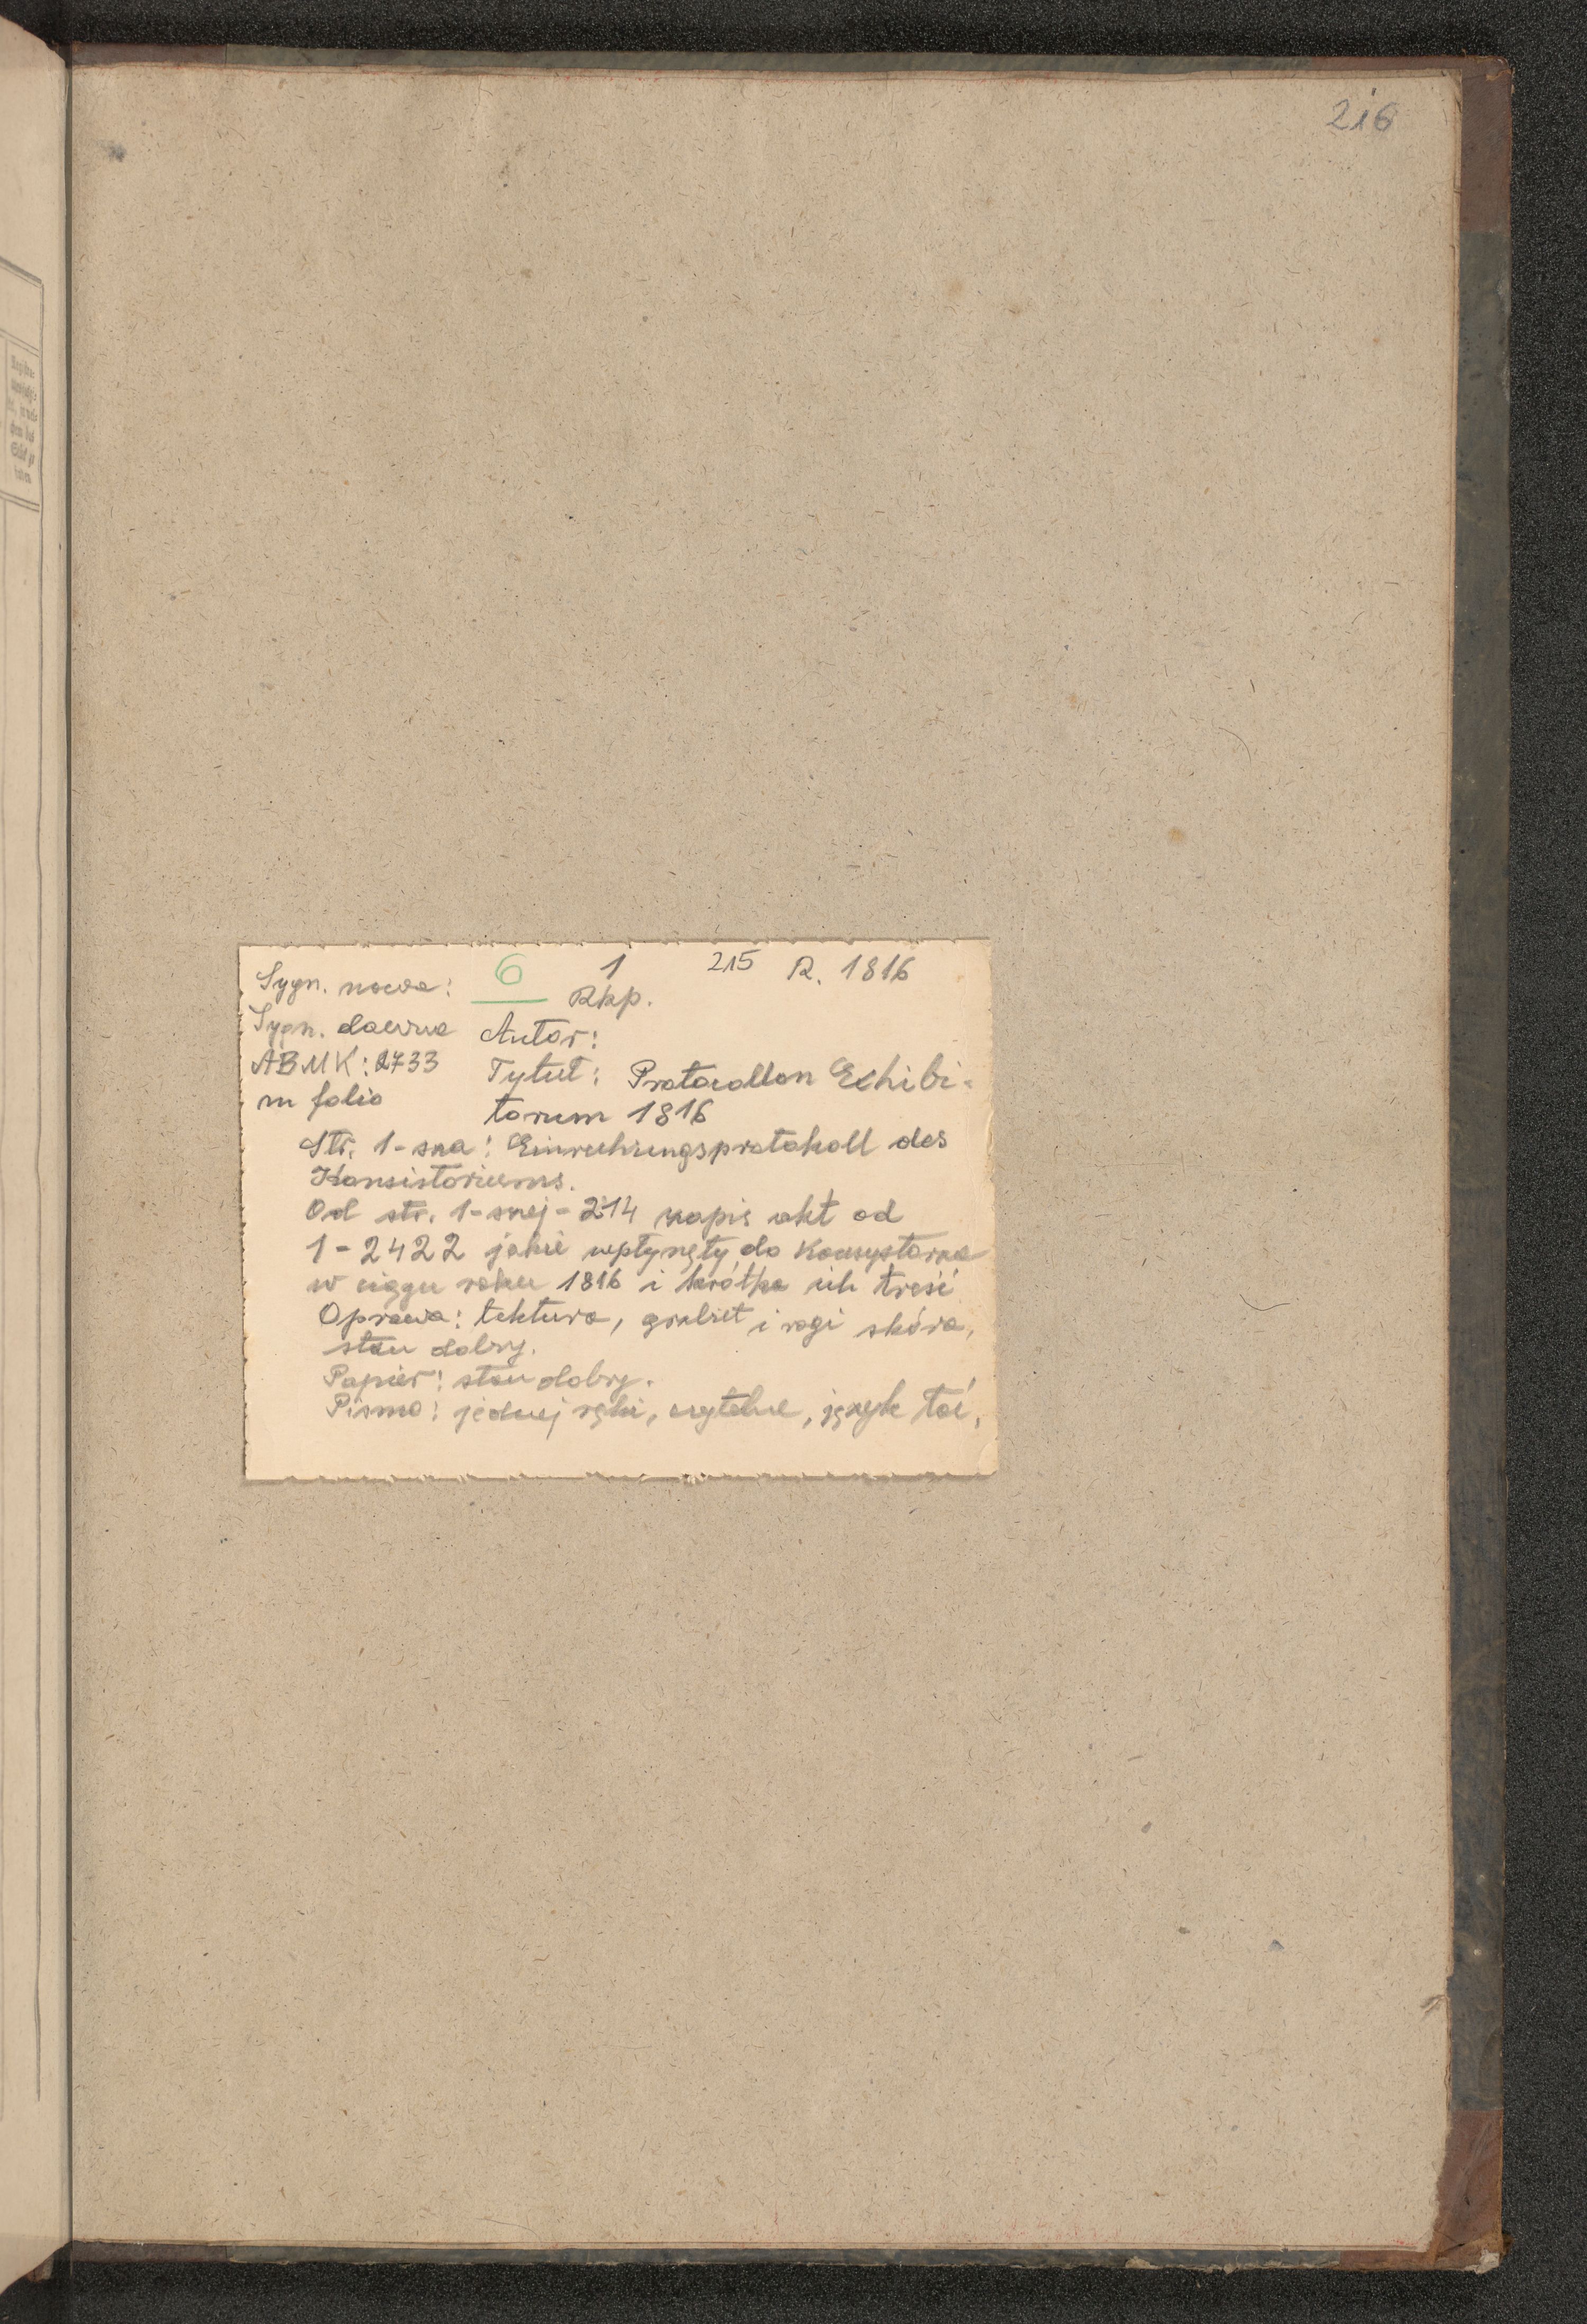 216
Sygn. nowa: 6 1 215 R. 1816
Rkp.
Sygn. dawna Autor:
ABMK: 2733 Tytuł: Protocollon Exhibi-
in folio torum 1816
Str. 1-sza: Einreichungsprotokoll des
Konsistoriums.
Od str. 1-szej - 214 zapis akt od
1-2422 jakie wpłynęły do Konsystorza
w ciągu roku 1816 i krótka ich treść
Oprawa: tektura, grzbiet i rogi skóra,
stan dobry.
Papier: stan dobry.
Pismo: jednej ręki, czytelne, język łać,